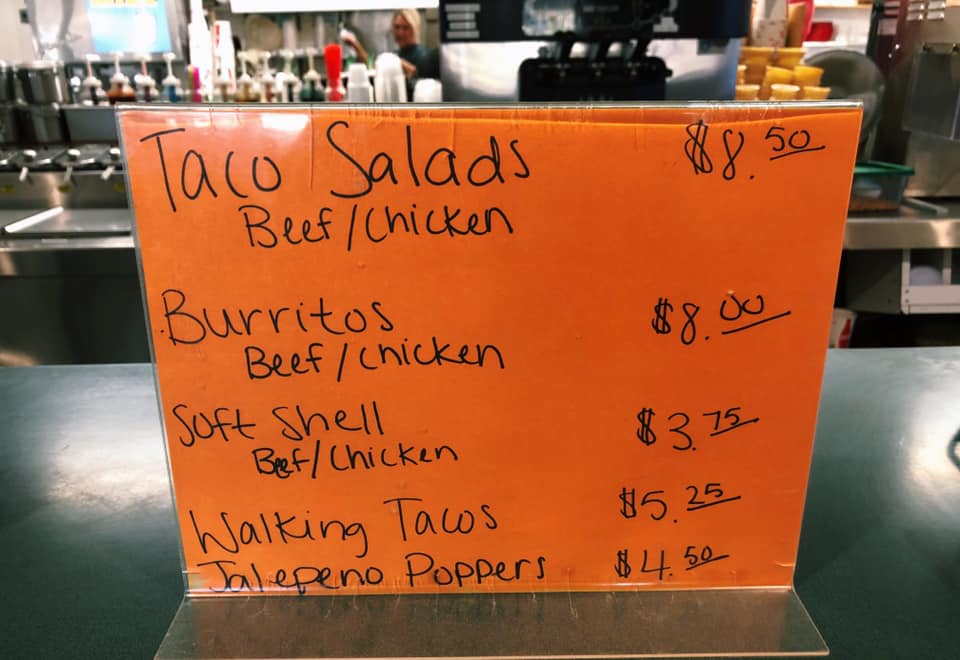 Taco Salads $8.50
Beef/Chicken
Burritos $8.00
Beef/Chicken
Soft Shell $3.75
Beef/Chicken
Walking Tacos $5.25
Jalepeno Poppers $4.50